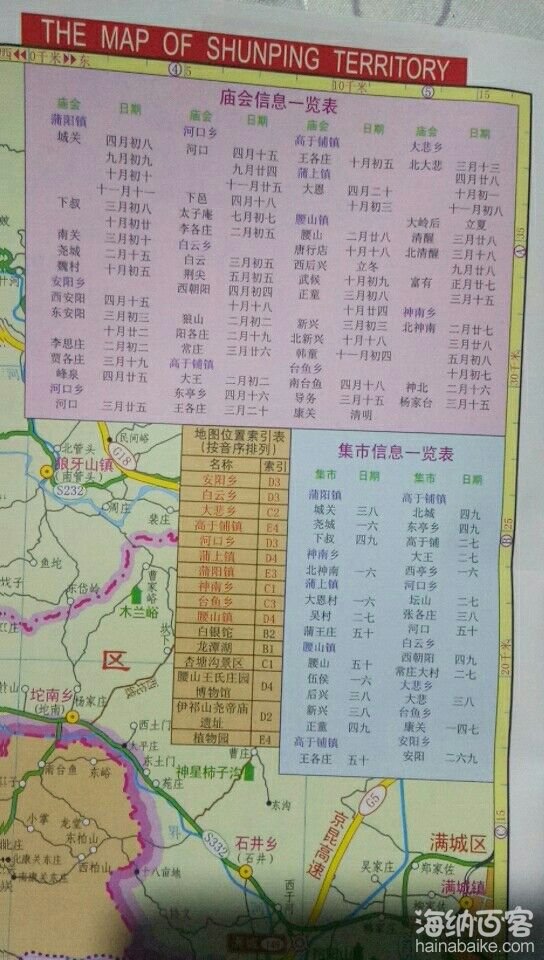 THE MAP OF SHUNPING TERRITORY
西 0千米 东
④ 5 10千米 ⑤ 15
庙会信息一览表
庙会 日期
蒲阳镇
城关 四月初八
九月初九
十月初十
十一月十一
下叔 三月初八
十月初廿
南关 三月初十
尧城 二月十五
魏村 十月初五
安阳乡
西安阳 四月十五
东安阳 三月初三
十月廿二
李思庄 十月初二
贾各庄 三月十九
峰泉 四月廿五
河口乡
河口 三月廿五
庙会 日期
河口乡
河口 四月十五
九月廿四
十一月廿五
下邑 四月十八
太子庵 七月初七
李各庄 二月初五
白云乡
白云 三月初五
荆尖 五月初五
西朝阳 四月初四
十月十八
狼山 二月初二
阳各庄 二月十九
常庄 三月廿六
高于铺镇
大王 二月初二
东亭乡 四月十六
王各庄 三月二十
庙会 日期
高于铺镇
王各庄 十月初五
蒲上镇
大恩 四月二十
十月初三
腰山镇
腰山 二月廿八
唐行店 十月十八
西后兴 立冬
武候 十月初九
正童 三月初八
十月廿四
新兴 三月初三
北新兴 十月十八
韩童 十一月初四
台鱼乡
南台鱼 四月十八
导务 三月十五
康关 清明
庙会 日期
大悲乡
北大悲 三月十三
四月廿八
十月初一
十一月初八
大岭后 立夏
清醒 三月廿八
北清醒 三月十八
九月廿八
富有 正月廿七
三月十五
神南乡
北神南 二月廿七
三月廿八
五月初八
十月初七
神北 二月十六
杨家台 三月十五
地图位置索引表
(按音序排列)
名称 索引
安阳乡 D3
白云乡 D3
大悲乡 C2
高于铺镇 E4
河口乡 D3
蒲上镇 D4
蒲阳镇 E3
神南乡 C1
台鱼乡 C3
腰山镇 D4
白银馆 B2
龙潭湖 B1
杏塘沟景区 C1
腰山王氏庄园
博物馆 D4
伊祁山尧帝庙
遗址 D2
植物园 E4
集市信息一览表
集市 日期
蒲阳镇
城关 三八
尧城 一六
下叔 四九
神南乡
北神南 一六
蒲上镇
大恩村 一六
吴村 二七
蒲王庄 五十
腰山镇
腰山 五十
伍侯 一六
后兴 三八
新兴 三八
正童 四九
高于铺镇
王各庄 五十
集市 日期
高于铺镇
北城 四九
东亭乡 四九
高于铺 二七
大王 二七
西亭乡 一六
河口乡
坛山 二七
张各庄 三八
河口 五十
白云乡
西朝阳 四九
常庄大村 二七
大悲乡
大悲 三八
台鱼乡
康关 一四七
安阳乡
安阳 二六九
A 35
30千米
25
B
20千米
C 15
北管头
民间峪
狼牙山镇
(南管头)
G18
S232
周庄
裴庄
鱼坨
东岱岭
曹家峪
木兰峪
区
坨南乡
(坨南)
杨家庄
西土门
太平庄
东土门
苑庄
南台鱼
东峪
曹庄
神星柿子沟
东沟
小掌
龙堂
东柏山
西柏山
北康关东庄
南康关东庄
十八亩地
S332
石井乡
(石井)
西于河
京昆高速
G5
满城区
吴家庄
郑家佐
满城镇
海纳百客
hainabaike.com